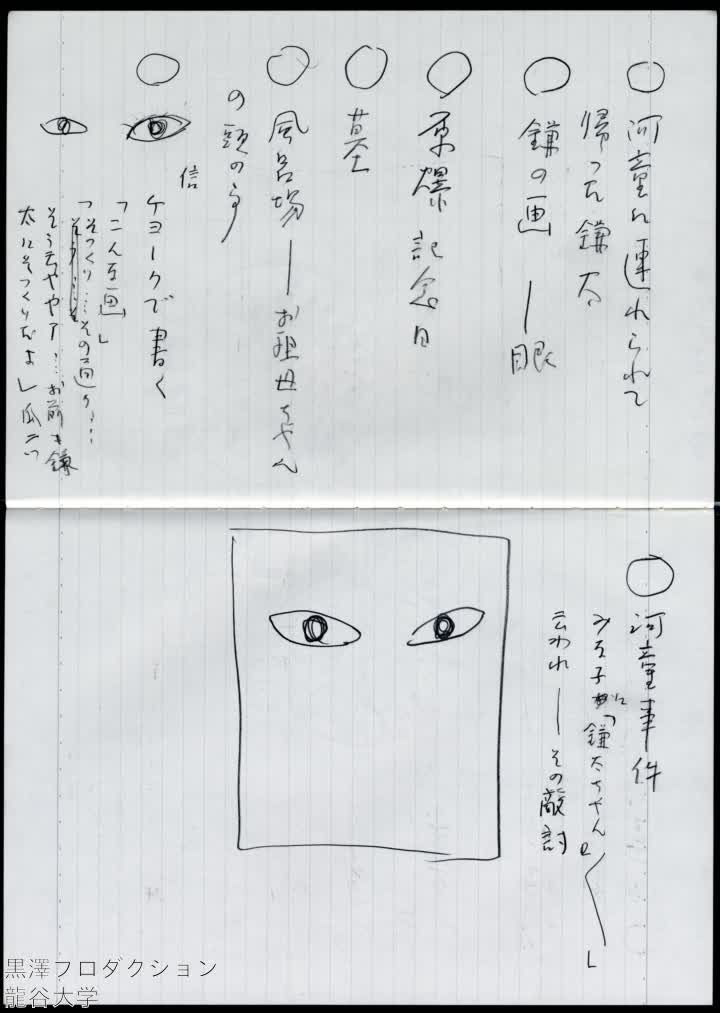 ○ 河童に連れられて
帰った鎌太
○ 鎌の画 ー 眼
○ 原爆記念日
○ 墓
○ 風呂場 ー お祖母ちゃん
の頭の
○
信
チョークで書く
「こんな画」
「そっくり……その通り……
そう云やヤア……お前も鎌
太にそっくりだよ」
○ 河童事件
みな子に「鎌太ちゃん
云われ ー その敵討
黒澤プロダクション
龍谷大学